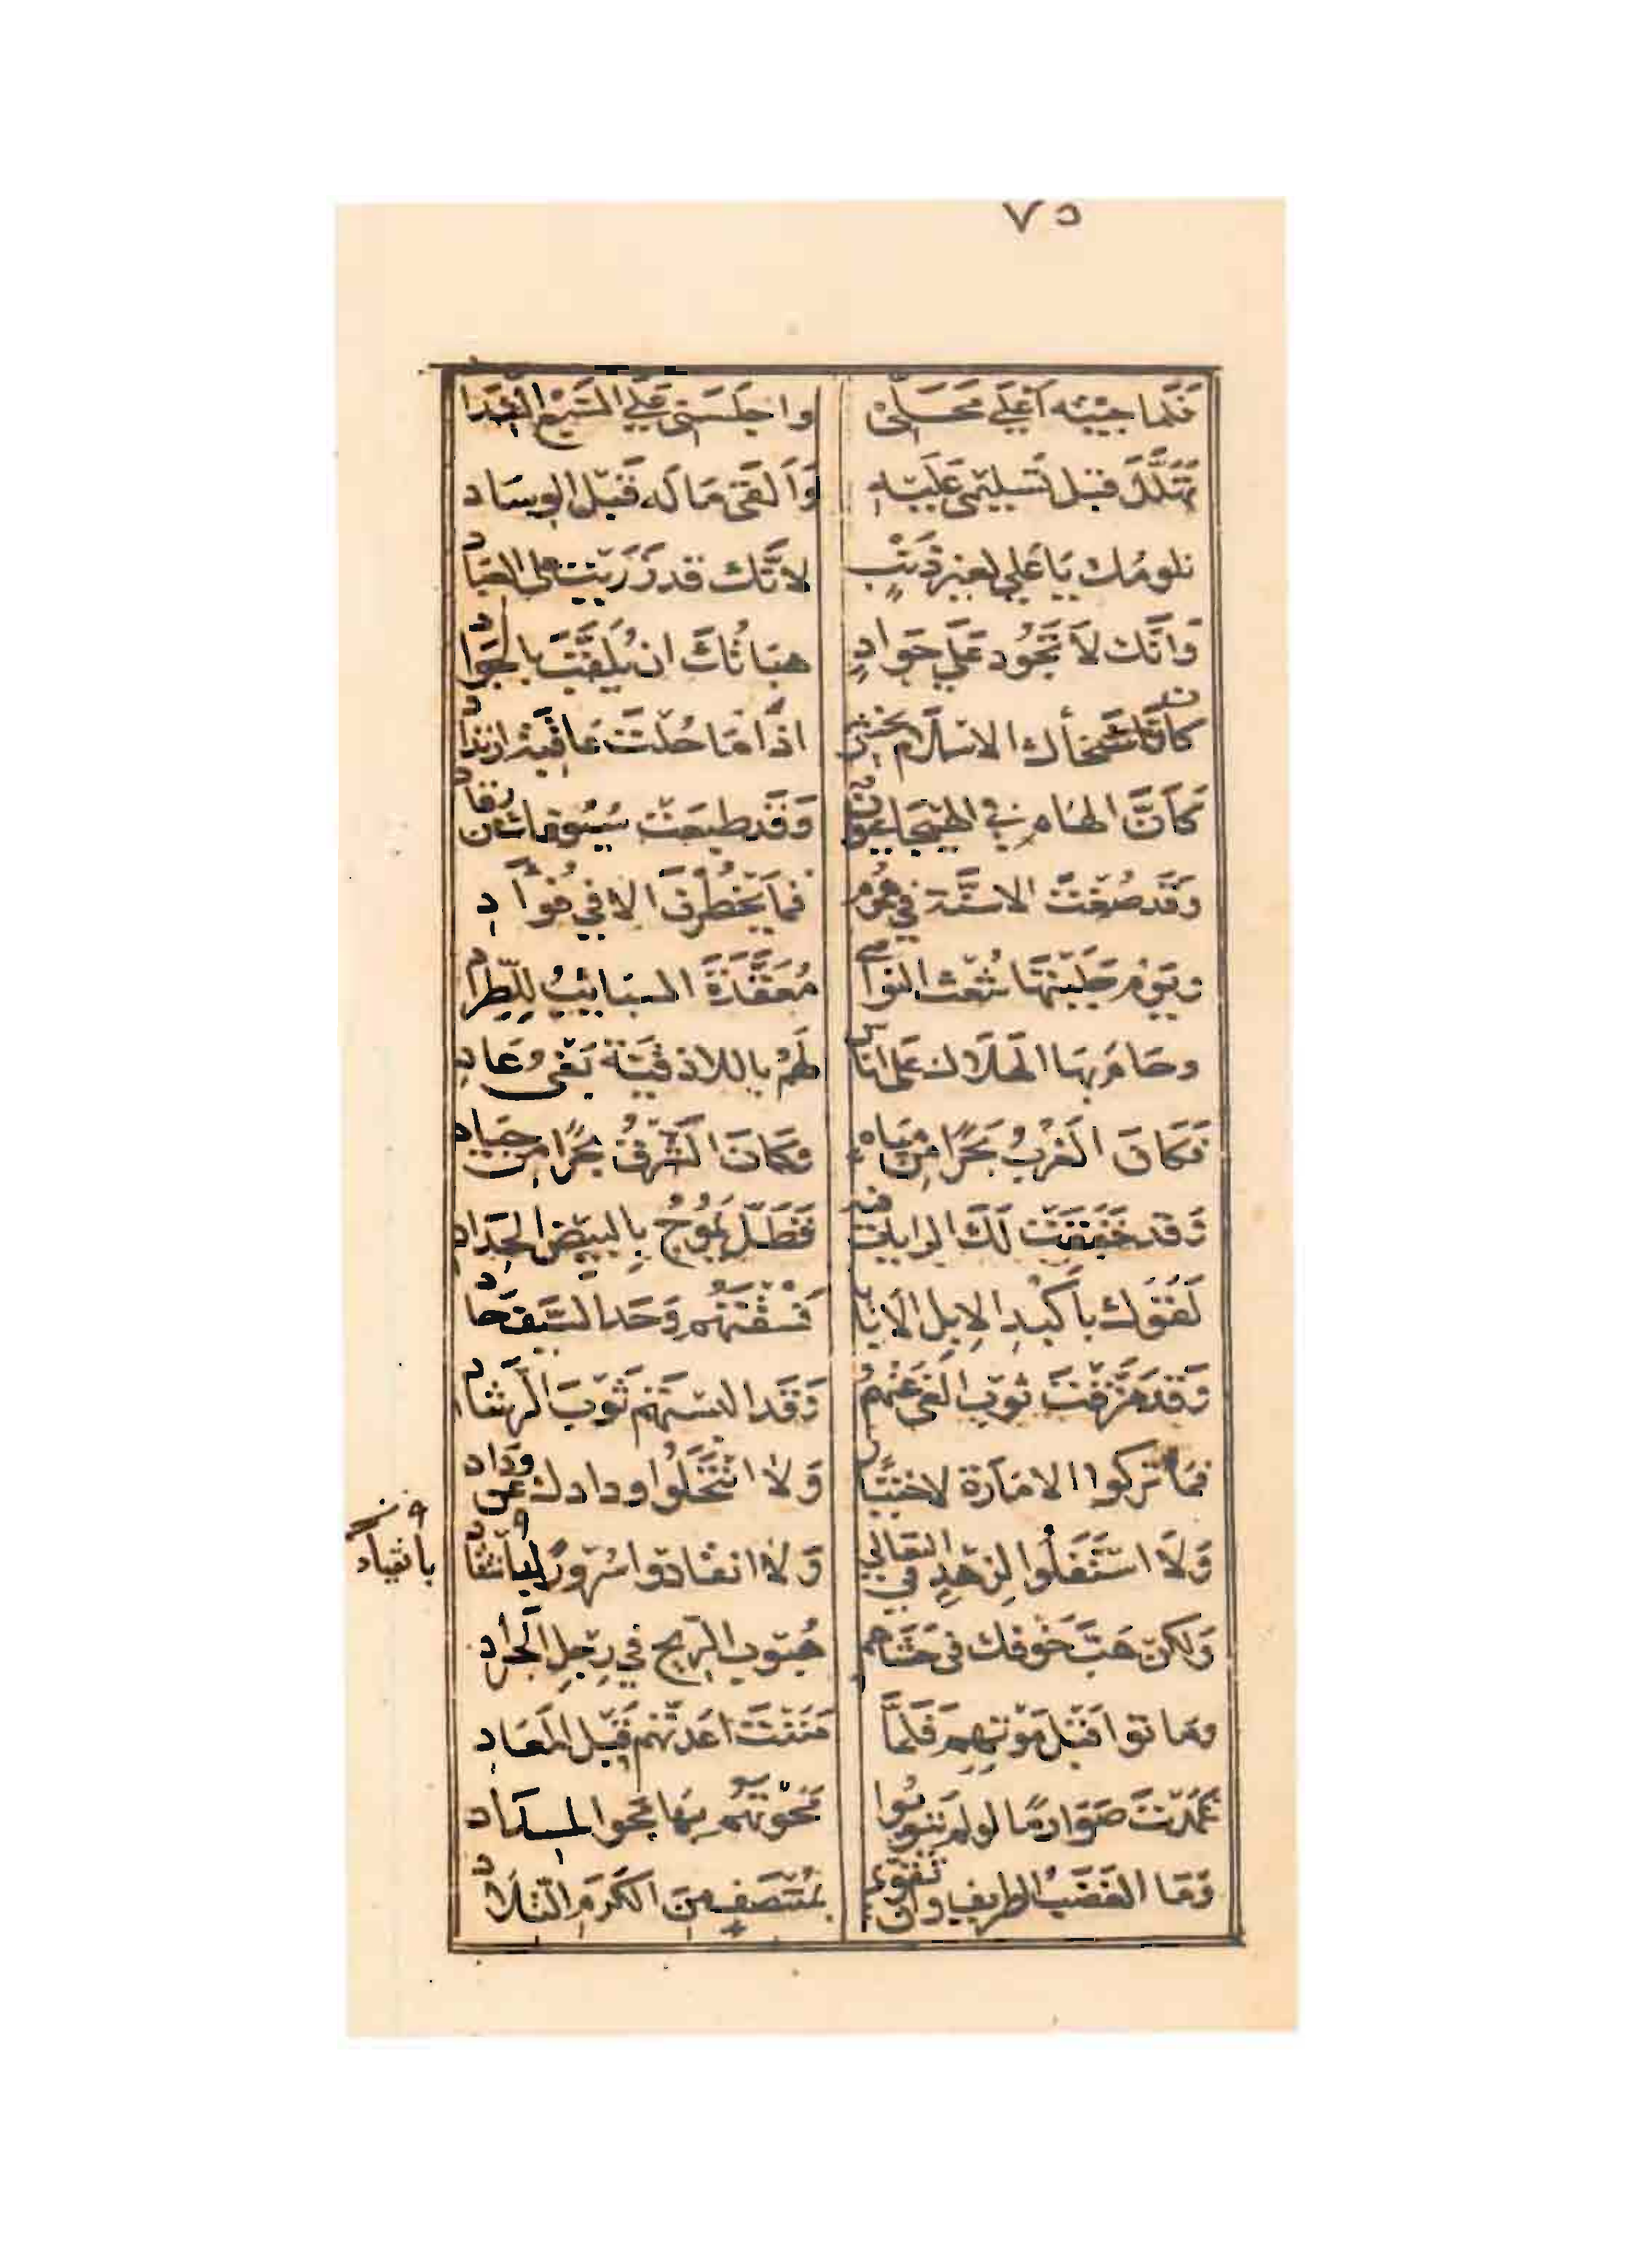 ٧٥
فَلَمَّا جِيْتُه اَعْلَى مَحَلِّىْ واجلَسَنى عَلَى السَّبْعِ الشِّدَادِ
تَهَلَّلَ قبْل تَسْلِيْمِى عَلَيْهِ وَاَلْقَى مَالَه قَبْلَ الوِسَادِ
نلومُك يَا عَلِي لغيْرِ ذَنْبٍ لاَنَّك قد زَرَيْتَ على العِبَادِ
وَاَنَّك لاَ تَجُود عَلَى جَوَادٍ هِبَاتُكَ ان يُلَقَّبَ بالجَوَادِ
كانَّ سَخَاك الاسْلَام تخْشَى اذَا مَا حُلْتَ عَاقِبَةَ ارْتِدَادِ
كَاَنَّ الهَام في الهَيْجَا عُيُون وَقَد طبِعَتْ سُيُوفك مِن رُقَاد
وَقَد صُغْتَ الاسِنَّة في هُمُوم فمَا يَخْطُرْنَ الا في فُؤَادِ
ويَوْم جَلَبْتهَا شُعْث النَّوَاصِى مُعَقَّدَةَ السَبَائِبِ لِلطِّرَادِ
وحَامَ بهَا الهَلَاك عَلى انَاسٍ لَهُمْ باللاذقيَّة بَغْىُ عَادِ
فَكَانَ الغَرْبُ بَحْرًا مِنْ مِيَاهٍ وَكَانَ الشَّرْقُ بَحْرًا من جِيَادِ
وَقَد خَفَقَتْ لَكَ الرايات فيه فَظَلَّ يَمُوْجُ بِالبِيْضِ الحِدَادِ
لَقُوْك باَكْبُدِ الاِبِلِ الاَبَايَا فَسُقْتَهُم وَحَد السَّيْف حَادِ
وَقَد مَزَّقْتَ ثوْبَ الغَى عَنْهُمُ وَقَد البسْتَهُم ثَوْبَ الرَّشَادِ
فمَا تَرَكوا الامَارَة لاخْتيَار وَلاَ انْتَحَلُوا ودادك مِن وِدَادِ
وَلَا اسْتَفَلُوا لزهْدٍ في التعالي وَلاَ انقادوا سُرُورًا
بانقياد
وَلكن هَبَّ خَوفك فى حَشَاهم هُبُوب الرِّيح في رِجِلِ الجَرَادِ
ومَا توا قَبْل مَوْتِهِم فَلَمَّا مَنَنْتَ اعَدتّهُم قَبْل المَعَادِ
غمَدْتَ صَوَارِمًا لو لم يَتُوبُوا مَحَوْتَهُم بِهَا مَحْوَ المِدَادِ
وَمَا الغَضَبُ الطريف وان تَقَوَّى بمُنْتَصِفٍ مِنَ الكَرَمِ التِّلَادِ